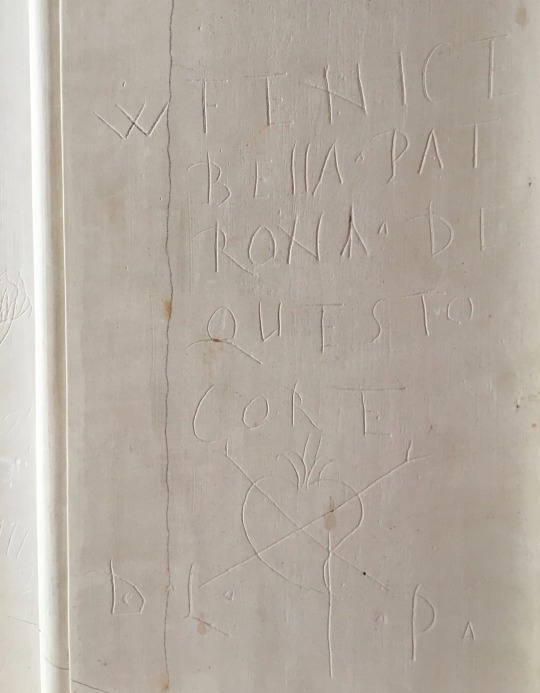 W FENICE
BELLA PAT
RONA DE
QUESTO
CORE
D L P